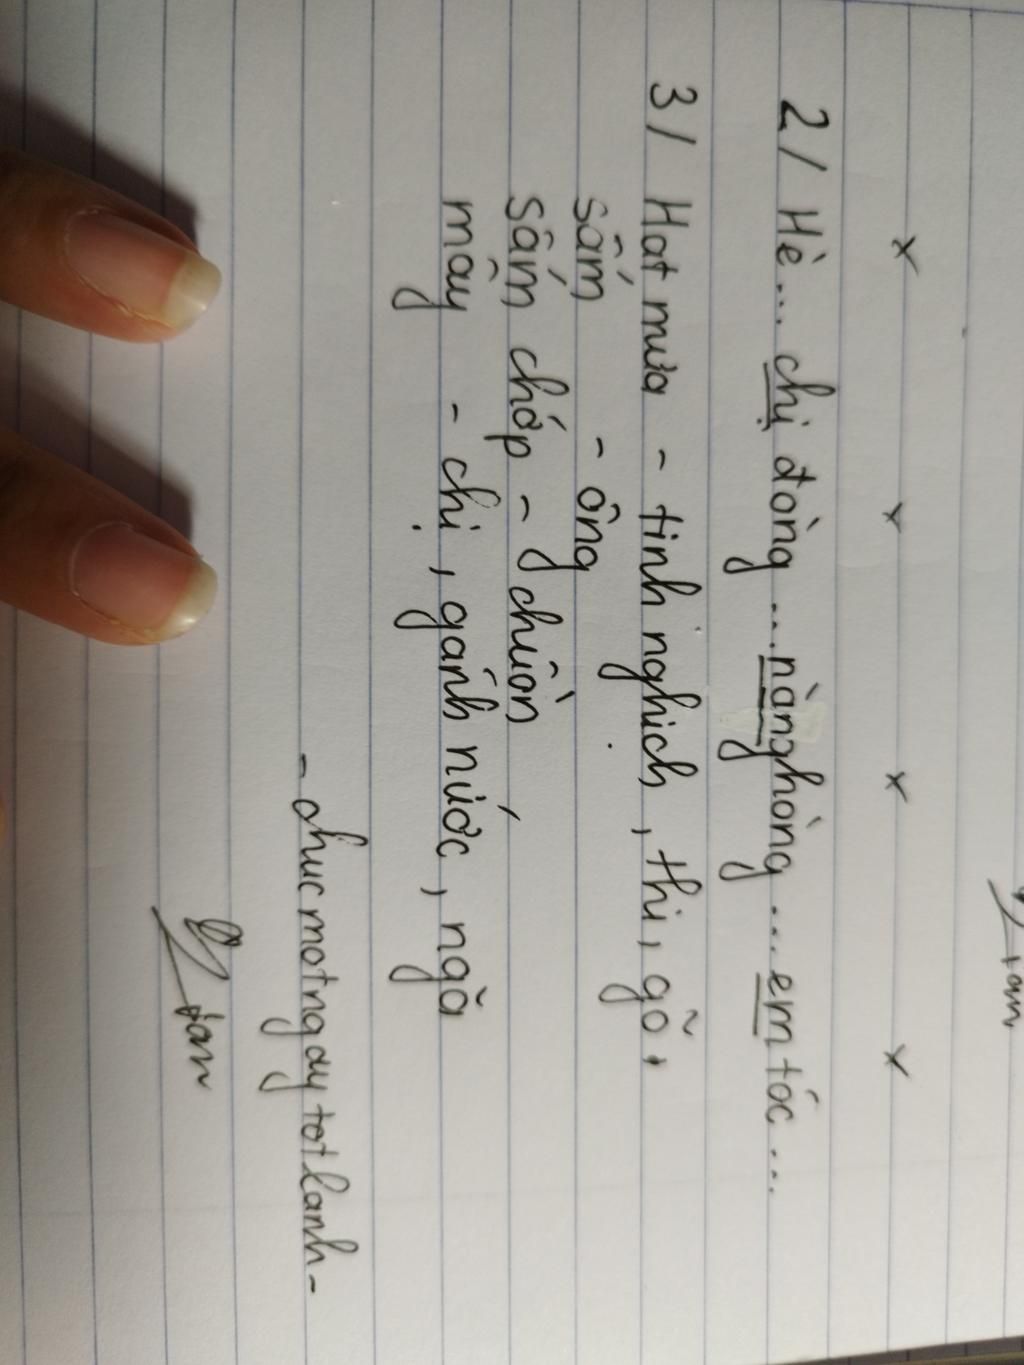 x x x x
2/ Hè... chị đòng ... nàng hòng ... em tóc ...
3/ Hạt mưa - tinh nghịch, thi, gõ,
sấm - ông
sấm chớp - g chuồn
mây - chị, gánh nước, ngã
- chuc mot ngay tot lanh -